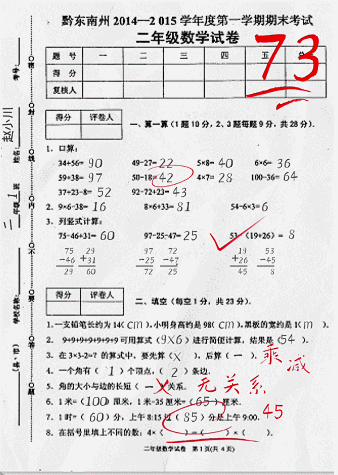 黔东南州 2014—2015 学年度第一学期期末考试
二年级数学试卷
73
题 号 一 二 三 四 五
得 分
复核人
考号:
姓名: 赵小川
二年级 1 班
学校名称:
(县、市)
得分 评卷人
一、算一算(1题10分,2、3题每题9分,共28分).
1. 口算:
34+56= 90 49-27= 22 5×8= 40 6×6= 36
59+38= 97 50-18= 42 4×7= 28 100-36= 64
37+23-8= 52 92-72+23= 43
2. 9×6-38= 16 8×6+33= 81 54-6×3= 6
3. 列竖式计算:
75-46+31= 60 97-25-47= 25 53-(19+26)= 8
75 29 97 72 19 53
-46 +31 -25 -47 +26 -45
29 60 72 25 45 8
得分 评卷人
二、填空(每空1分,共23分).
1.一支铅笔长约为 14( cm ),小明身高约是 98( cm ),黑板的宽约是 1( m ).
2. 9+9+9+9+9+9 可用算式( 9×6 )进行简便计算,结果是( 54 ).
3. 在 3×3-2=? 的算式中,要先算( × ),后算( - ). 乘 减
4. 一个角有( 1 )个顶点,( 2 )条边.
5. 角的大小与边的长短( 一 )关系. 无关系
6. 1 米=( 100 )厘米, 1 米-35 厘米=( 65 )厘米.
7. 1 时=( 60 )分, 上午 8:15 过( 85 )分是上午 9:00. 45
8. 在括号里填上不同的数: 4×( )=( )×( )
二年级数学试卷 第 1 页(共 4 页)